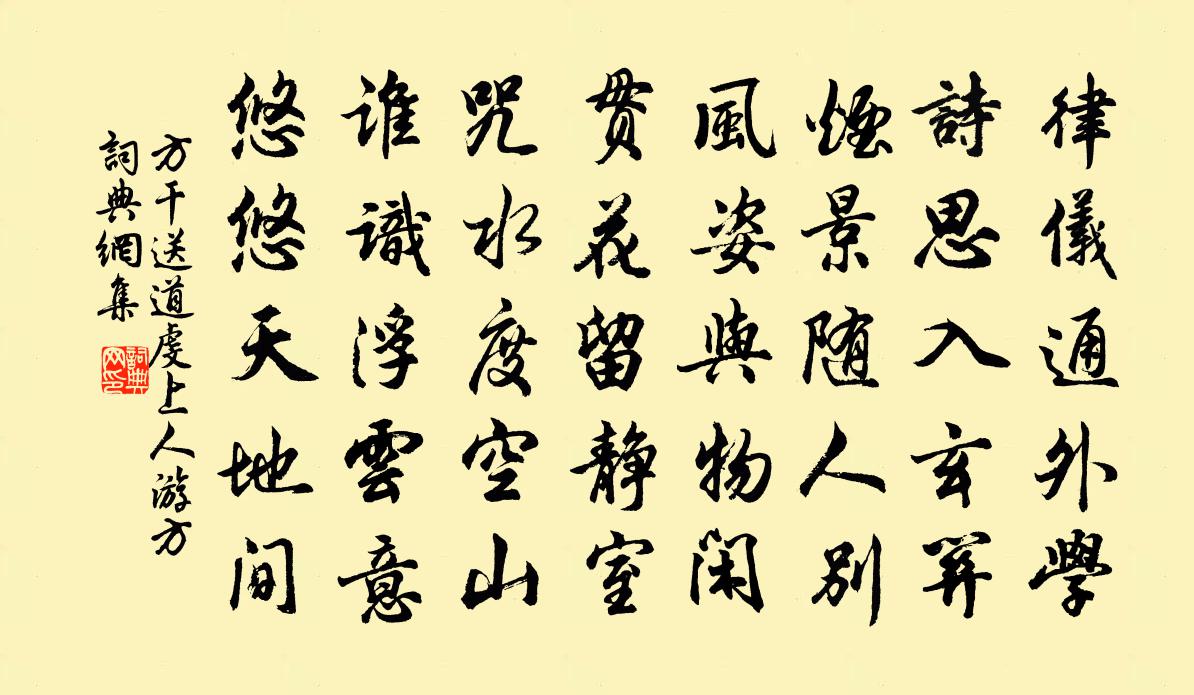 律儀通外學
詩思入玄關
煙景随人别
風姿與物閑
貫花留静室
咒水度空山
誰識浮雲意
悠悠天地間
方干送道虔上人游方
詞典網集
詞典网印